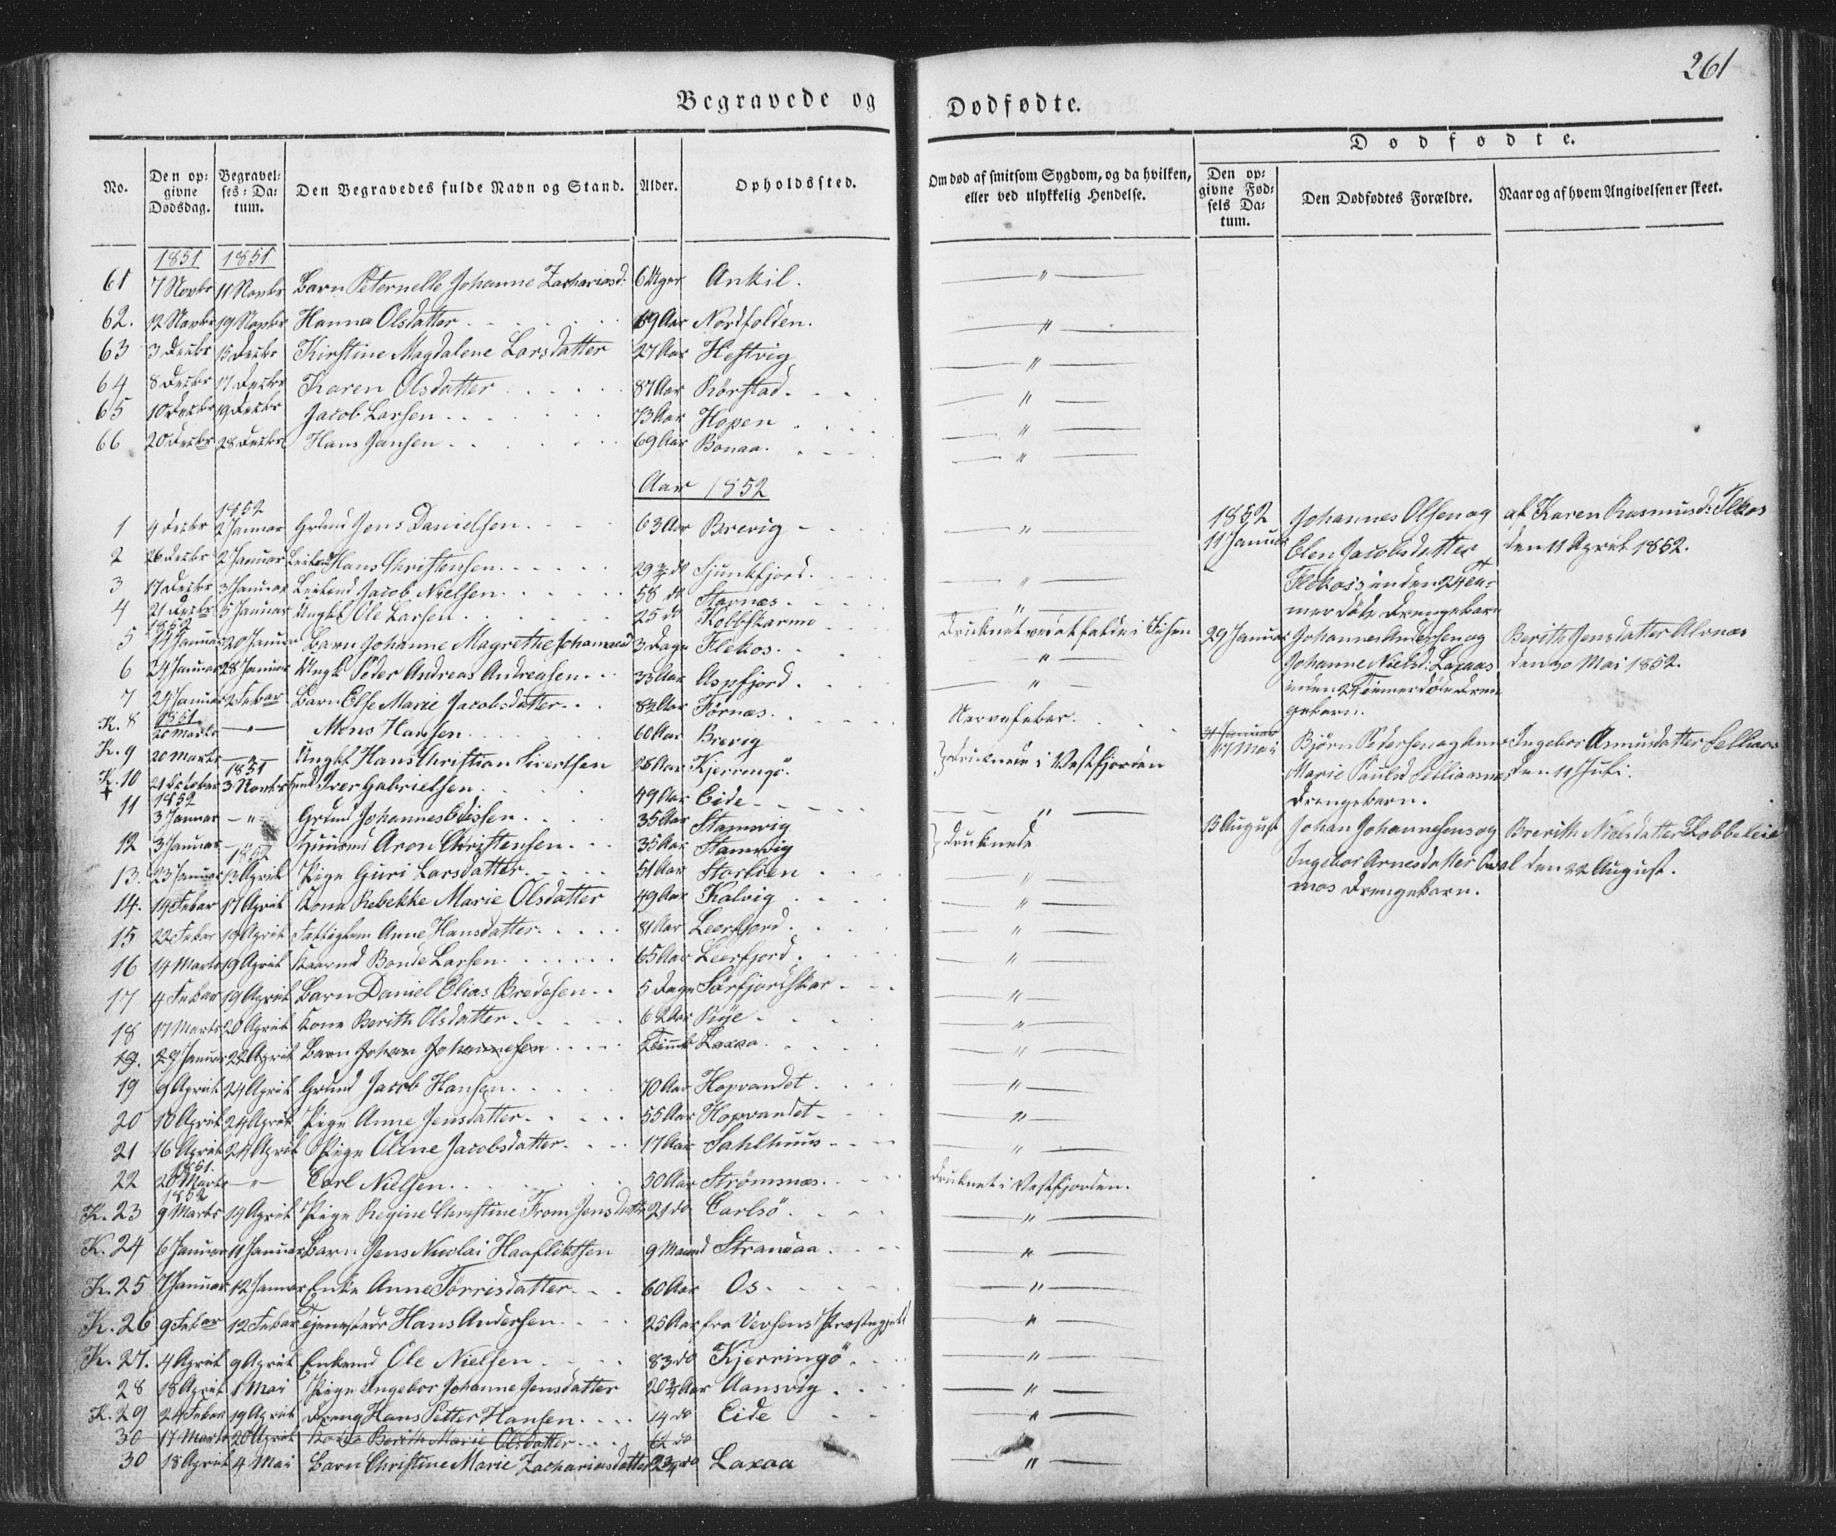 261
Begravede og Dødfødte.
Dødfødte.
No.
Den opgivne Dødsdag.
Begravelses-Datum.
Den Begravedes fulde Navn og Stand.
Alder.
Opholdssted.
Om død af smitsom Sygdom, og da hvilken, eller ved ulykkelig Hendelse.
Den opgivne Fødsels Datum.
Den Dødfødtes Forældre.
Naar og af hvem Angivelsen er skeet.
1851 1851
61 7 Novbr 11 Novbr Barn Peternelle Johanne Zachariasd: 6 Uger Ankil. "
62. 12 Novbr 19 Novbr Hanna Olsdatter 69 Aar Nordfolden. "
63 3 Decbr 15 Decbr Kirstine Magdalene Larsdatter 27 Aar Hestvig "
64 8 Decbr 17 Decbr Karen Olsdatter 87 Aar Rørstad "
65 10 Decbr 19 Decbr Jacob Larsen 73 Aar Hopen "
66 20 Decbr 28 Decbr Hans Jansen 69 Aar Bonaa. "
Aar 1852
1852
1 9 Decbr 2 Januar Grdmd Jens Danielsen 63 Aar Brevig "
2 26 Decbr 2 Januar Hans Christensen 29 do Tjunkfjord. "
3 17 Decbr 3 Januar Jacob Nielsen 58 do Stavnes "
4 21 Decbr 5 Januar Ungkl Ole Larsen 25 do Kobbskarmo Drucknet ved at falde i Elven
1852
5 14 Januar 20 Januar Barn Johanne Magrethe Johannesd 3 Dage Flekos. "
6 24 Januar 28 Januar Ungk. Peder Andreas Andreasen 33 Aar Aspfjord "
7 24 Januar 2 Febar Barn Else Marie Jacobsdatter Førnes Nervefeber.
1851
K. 8 20 Marts " Mons Hansen 60 Aar Brevig
K. 9 20 Marts Ungkl Hans Christian Sivertsen 28 Aar Kjerringö. Druknede i Vestfjorden
1851
K. 10 21 October 3 Novbr Iver Gabrielsen 49 Aar Eide "
1852
11 3 Januar " Grdmd Johannes Edissen 35 Aar Stamvig
12 3 Januar Huusmd Aron Christensen 35 Aar Stamvig druknede
1852
13. 23 Januar 13 April Pige Guri Larsdatter 51 Aar Storlien "
14. 14 Febar 17 April Kone Rebekke Marie Olsdatter 49 Aar Kalvig "
15 22 Febar 19 April Fattiglem Anne Hansdatter 81 Aar Leerfjord "
16 14 Marts 19 April Kaarmd Bonde Larsen 65 Aar Leerfjord "
17 4 Febar 19 April Barn Daniel Elias Bredesen 5 Dage Sørfjordskar "
18 17 Marts 20 April Kone Berith Olsdatter 62 Aar Røje "
19. 29 Januar 22 April Barn Johan Johannesen Laxaa. "
19 9 April 24 April Grdmd Jacob Hansen 70 Aar Hopvandet "
20 10 April 24 April Pige Anne Jensdatter 55 Aar Hopvandet "
21 16 April 24 April Pige Oline Jacobsdatter 17 Aar Sahlhuus "
1851.
22 20 Marts " Carl Nielsen 50 Aar Strømsnes druknet i Vestfjorden.
1852
K. 23 9 Marts 14 April Pige Regine Christine From Jensdattr 21 do Carlsö "
K. 24 6 Januar 11 Januar Barn Jens Nicolai Haaflidtsen 9 Maand Strandaa "
K. 25 7 Januar 12 Januar Enke Anne Torrisdatter 60 Aar Os "
K. 26 9 Febar 12 Febar Tjenestedr Hans Andersen 25 Aar fra Vevsens Præstegjeld "
K. 27. 4 April 9 April Enkemd Ole Nielsen 83 do Kjerringö "
28 18 April 1 Mai Pige Ingebor Johanne Jensdatter 20 3/4 Aar Aansvig "
K. 29 24 Febar 19 April Dreng Hans Petter Hansen 14 do Eide "
30 17 Marts 20 April Kone Berith Marie Olsdatter 62 do
30 18 April 4 Mai Barn Christine Marie Zachariasdatter 2 3/4 do Laxaa "
1852
11 Januar Johannes Olsen og Elen Jacobsdatter Flekos inden 24 Timer døde Drengebarn
af Karen Rasmusd: Flekos den 11 April 1852.
29 Januar Johannes Andersen og Johanne Nielsd: Laxaa inden 24 Timer døde Drengebarn.
Berith Jensdatter Alvnes den 20 Mai 1852.
31 Januar
10 Mai Bjørn Pedersen og Marie Paulsd Drengebarn.
Ingebor Asmusdatter den 11 Juli.
13 August Johan Johannesens og Ingebor Arnesdatter Drengebarn.
Brerith Nielsdatter Kobbeleie den 22 August.